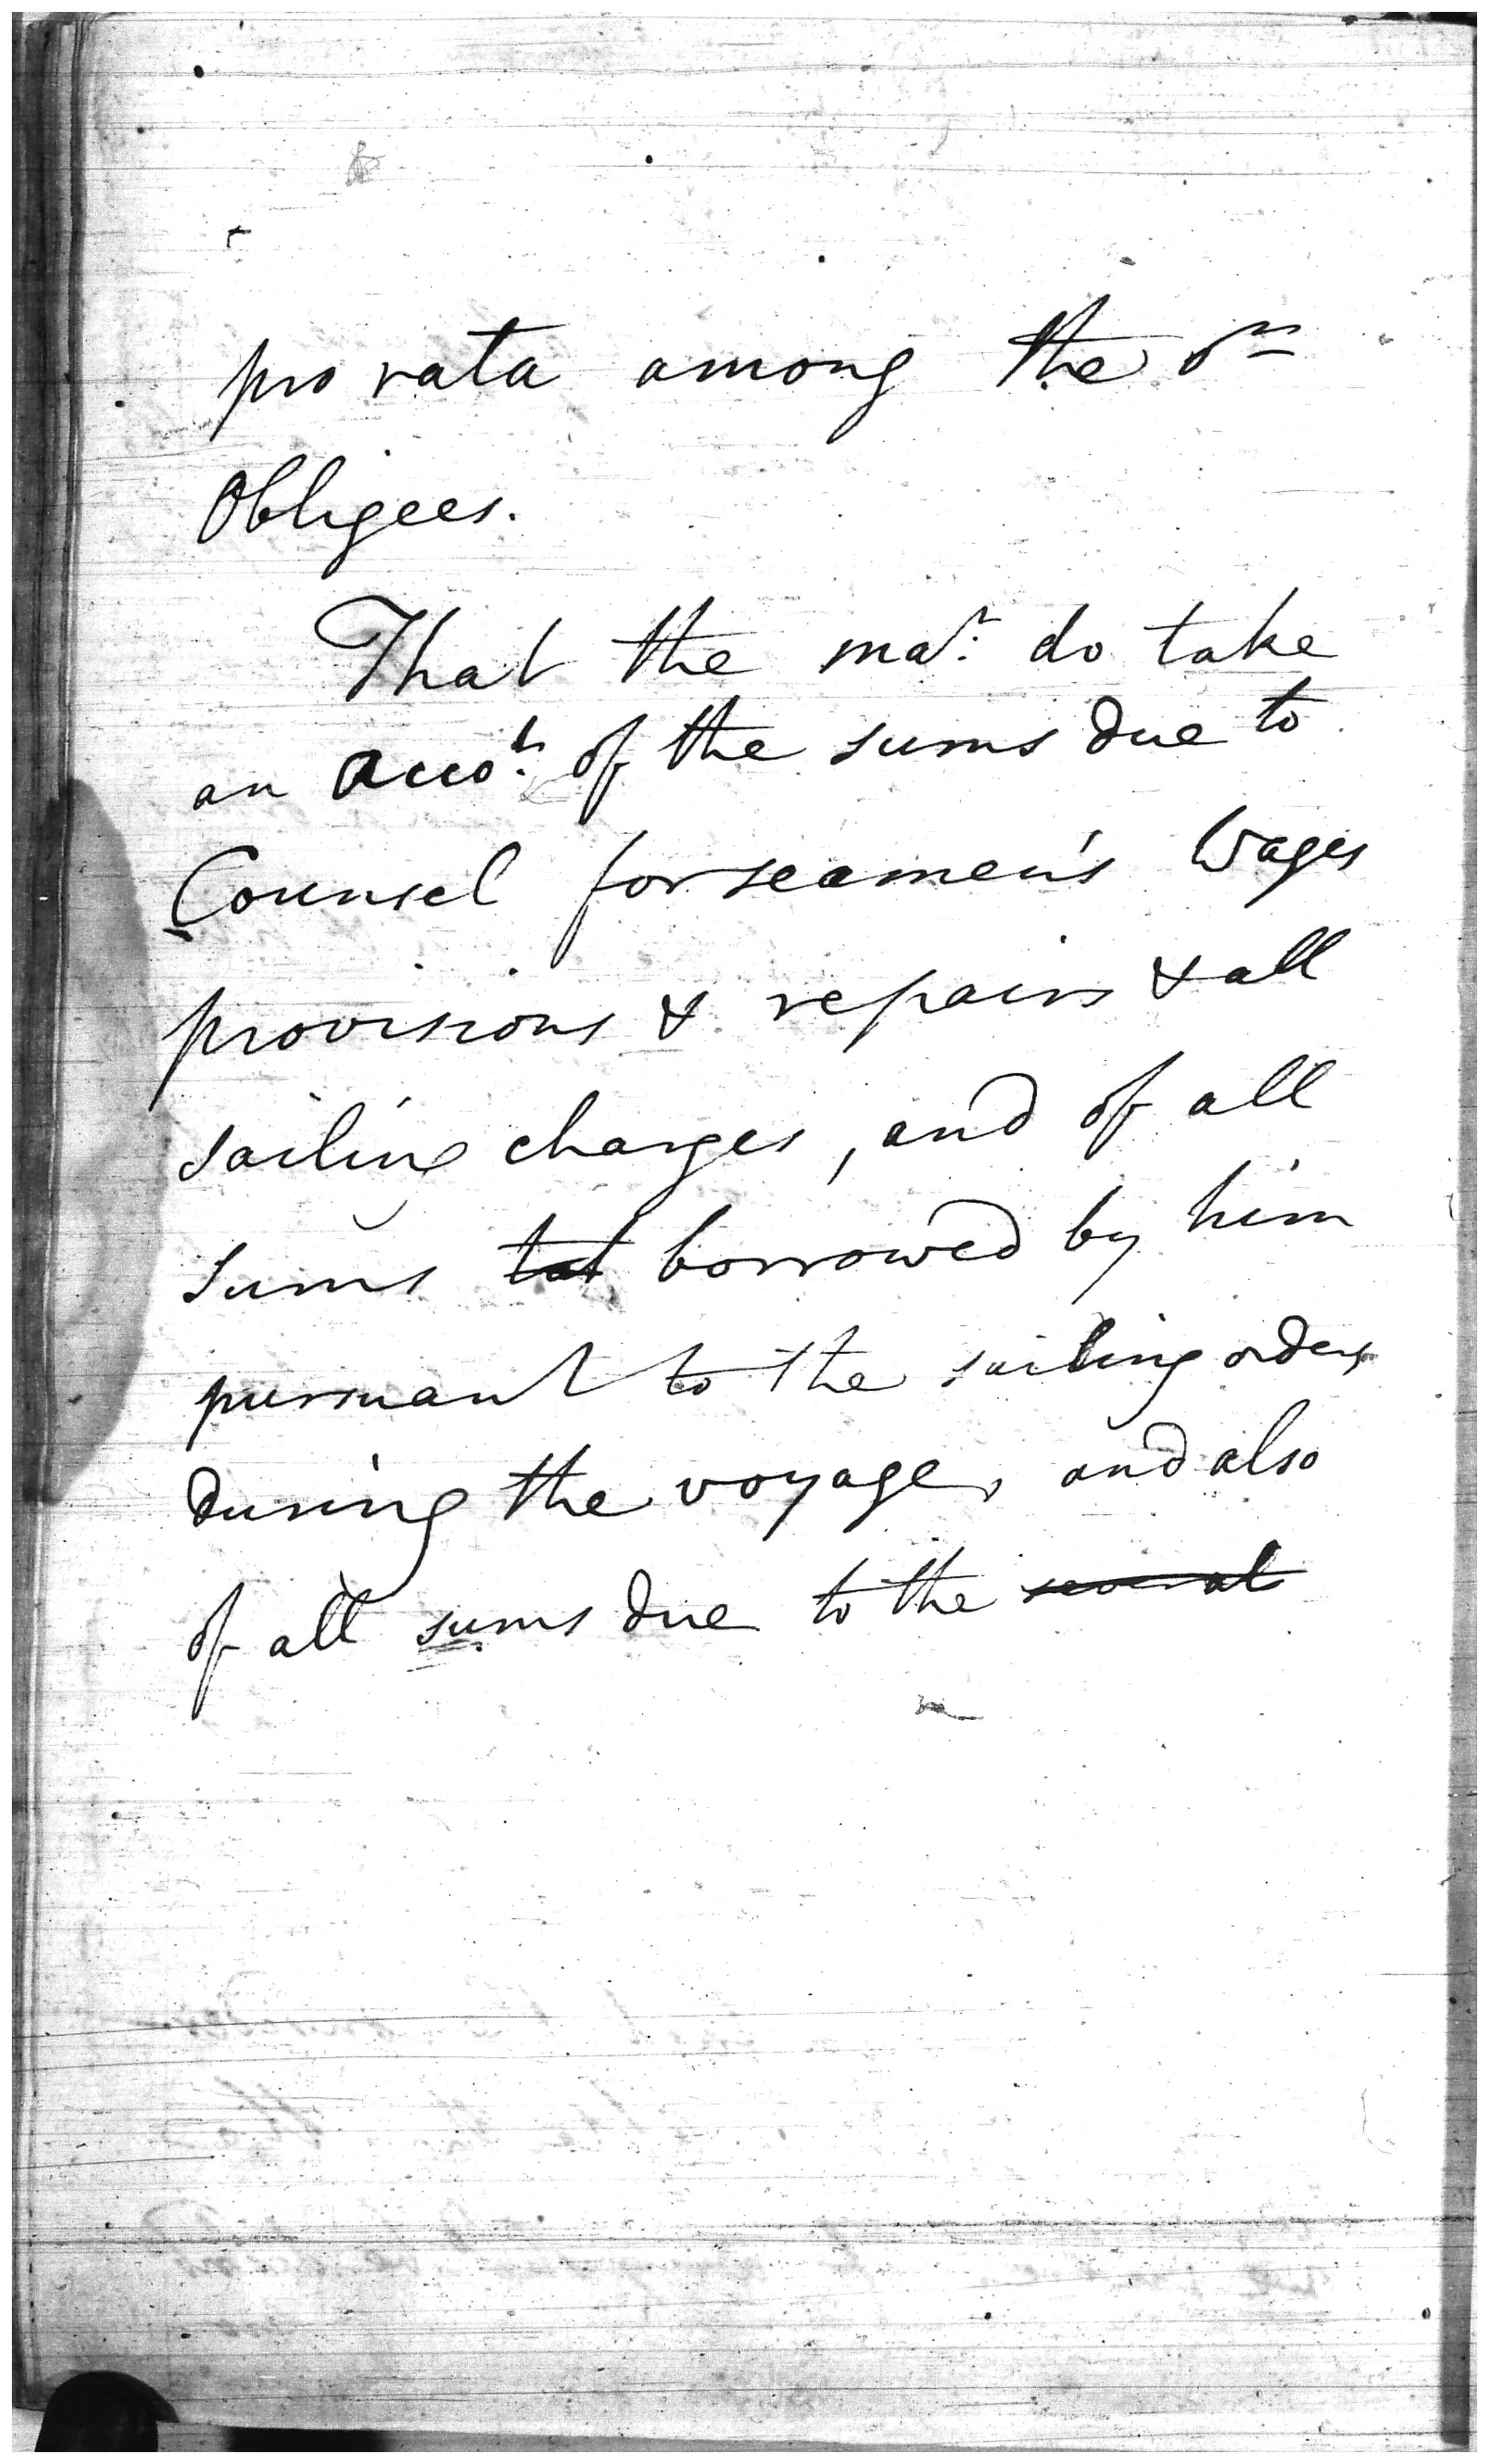 pro rata among the
Obligees.
That the mar. do take
an Accot. of the sums due to
Counsel for seamen's Wages
provisions & repairs & all
sailing charges, and of all
sums borrowed by him
pursuant to the sailing orders
during the voyage, and also
of all sums due to the several